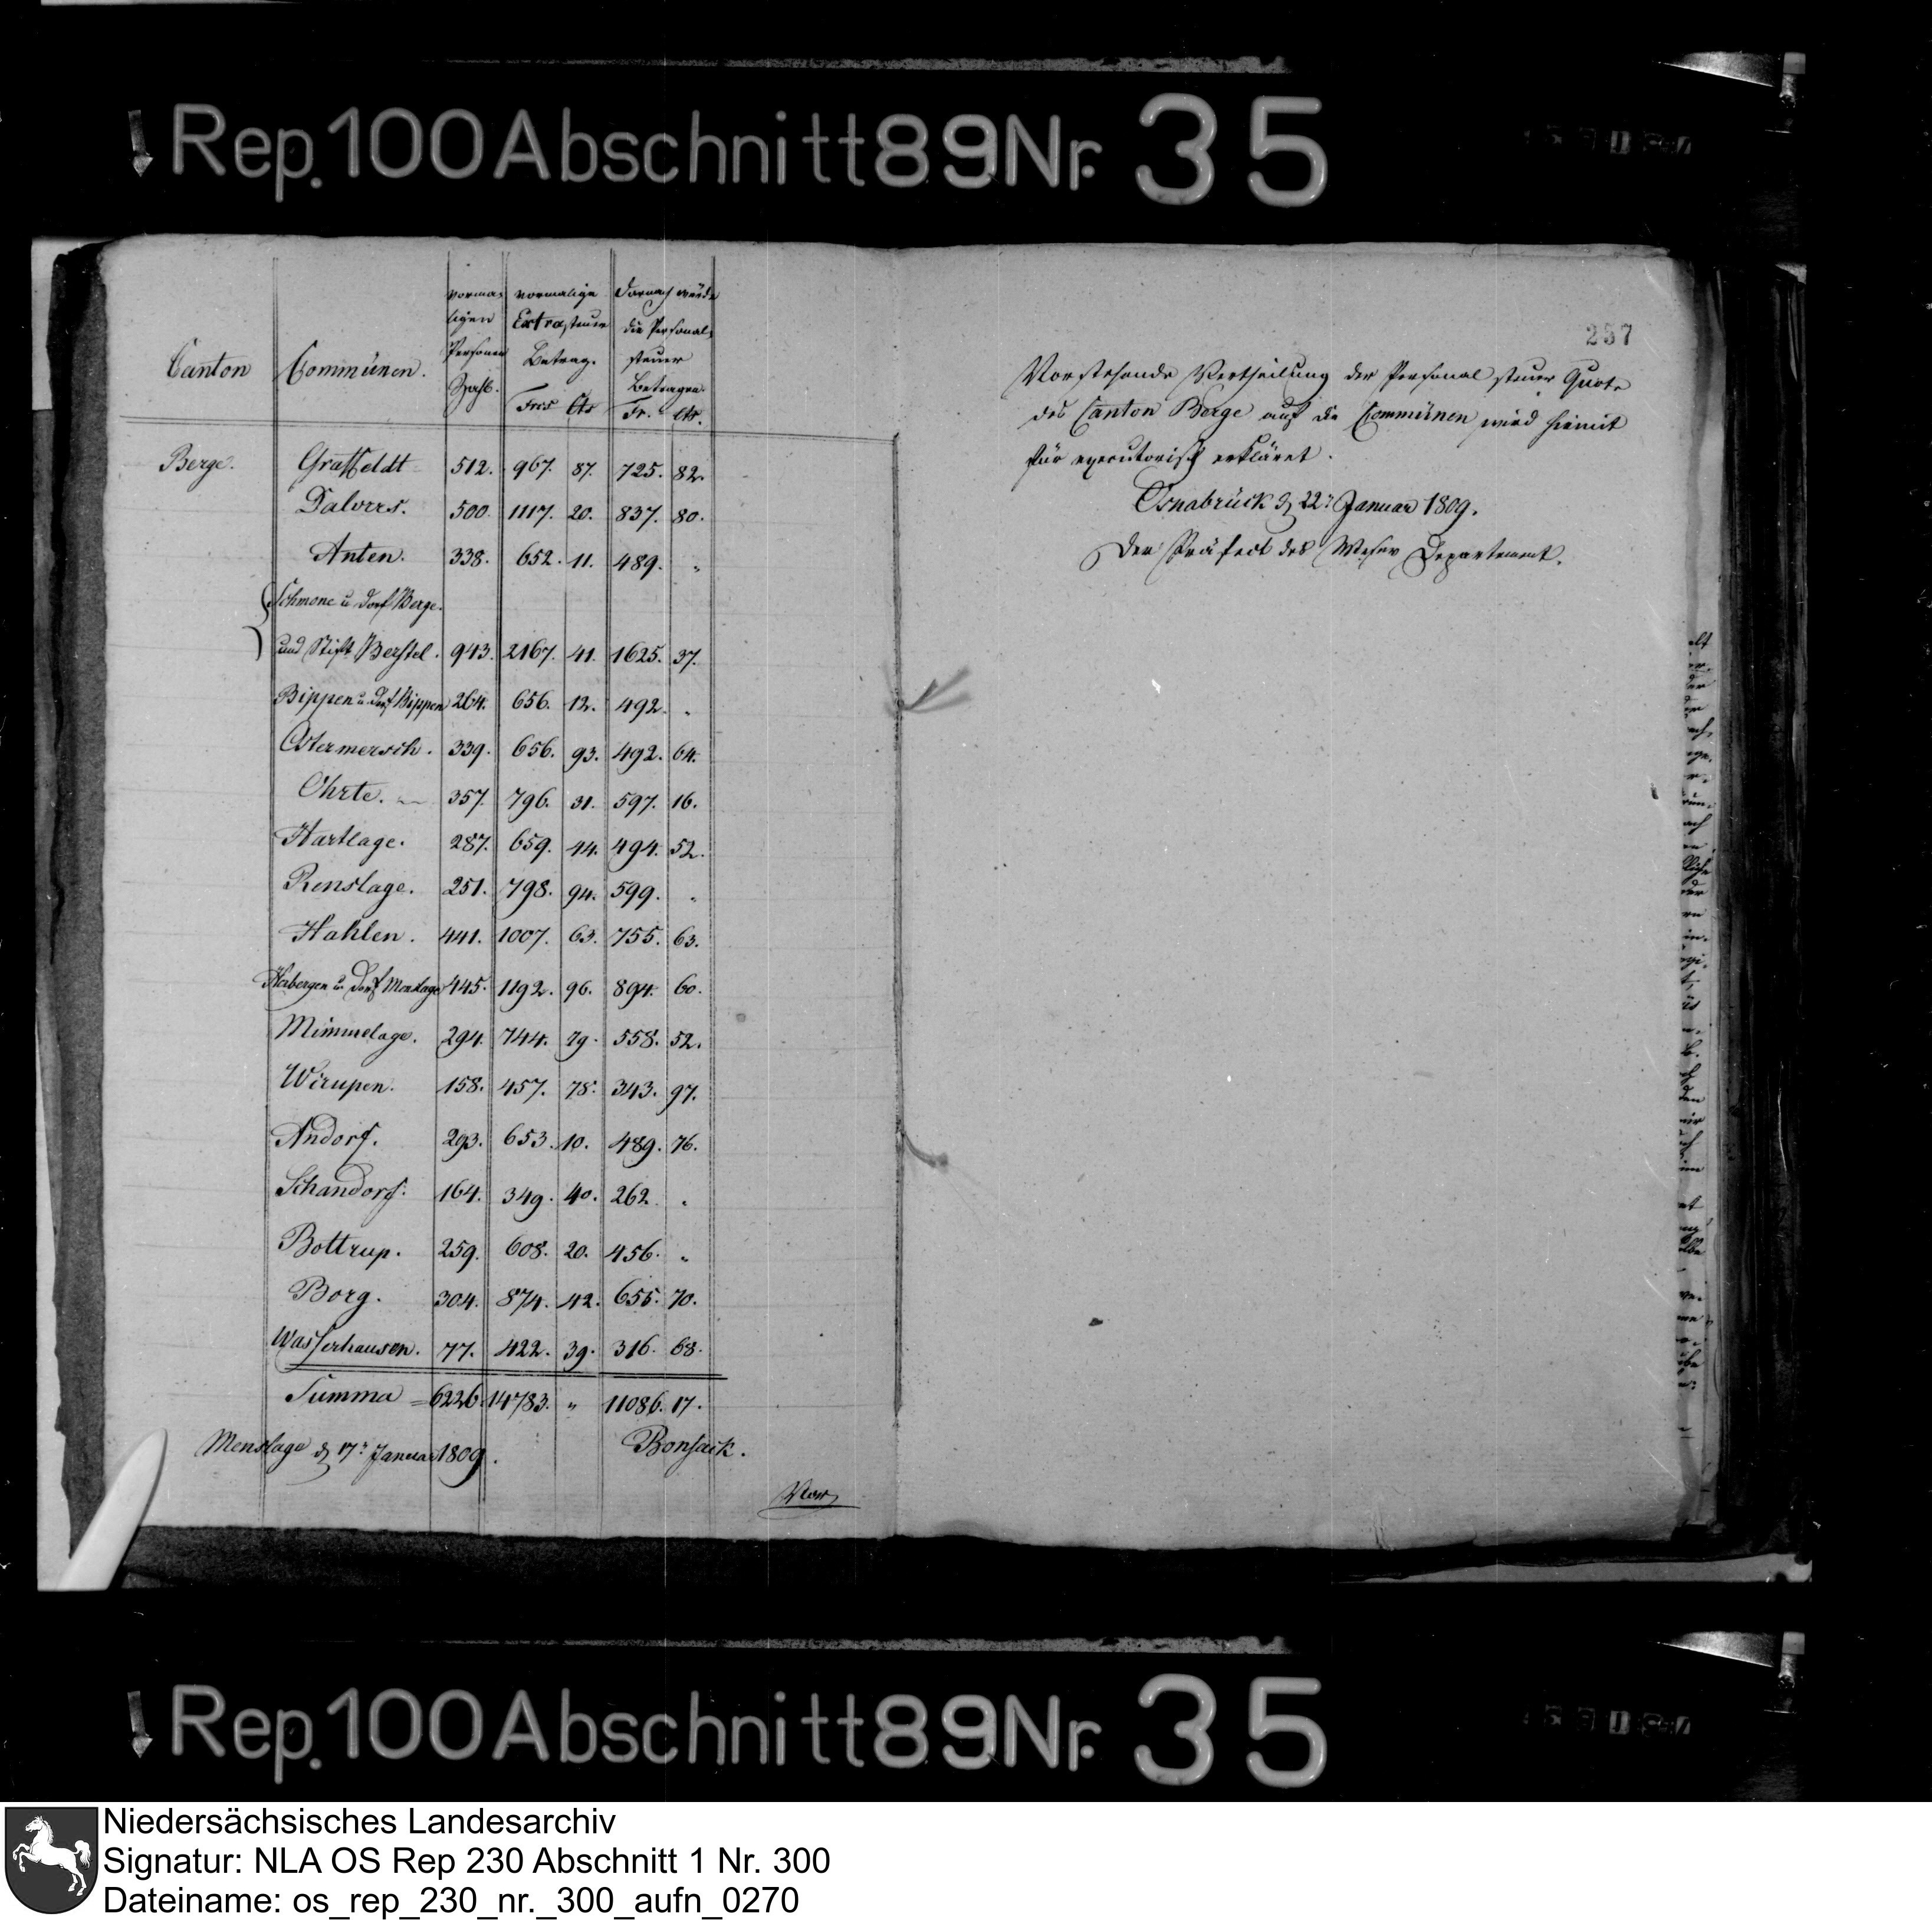 Rep. 100 Abschnitt 89 Nr. 35
Canton
Communen.
vorma-
ligen
Personen
Zahl.
vormalige
Extrasteuer
Betrag.
Frcs Cts
Darnach würde
die Personal-
steuer
Betragen.
Fr. Cts.
Berge. Graffeldt 512. 967. 87. 725. 82.
Dalvers. 500. 1117. 20. 837. 80.
Anten. 338. 652. 11. 489. "
Schmone u Dorf Berge.
und Stift Berstel. 943. 2167. 41. 1625. 37.
Bippen u. Dorf Bippen 264. 656. 12. 492. "
Ostermersch. 339. 656. 93. 492. 64.
Ohrte. 357. 796. 31. 597. 16.
Hartlage. 287. 659. 44. 494. 52.
Renslage. 251. 798. 94. 599. "
Hahlen. 441. 1007. 63. 755. 63.
Herbergen u. Dorf Menslage 445. 1192. 96. 894. 60.
Mimmelage. 294. 744. 79. 558. 52.
Wirupen. 158. 457. 78. 343. 97.
Andorf. 293. 653. 10. 489. 76.
Schandorf. 164. 349. 40. 262. "
Bottrup. 259. 608. 20. 456. "
Borg. 304. 874. 42. 655. 70.
Wasserhausen. 77. 422. 39. 316. 68.
Summa = 6226. 14783. " 11086. 17.
Menslage d 17t Januar 1809.
Bonsack.
Vor
237
Vorstehende Vertheilung der Personal steuer Quote
des Canton Berge auf die Communen wird hiemit
für executorisch erkläret.
Osnabrück d 22t Januar 1809.
Der Präfect des Weser Departement.
Rep. 100 Abschnitt 89 Nr. 35
Niedersächsisches Landesarchiv
Signatur: NLA OS Rep 230 Abschnitt 1 Nr. 300
Dateiname: os_rep_230_nr._300_aufn_0270